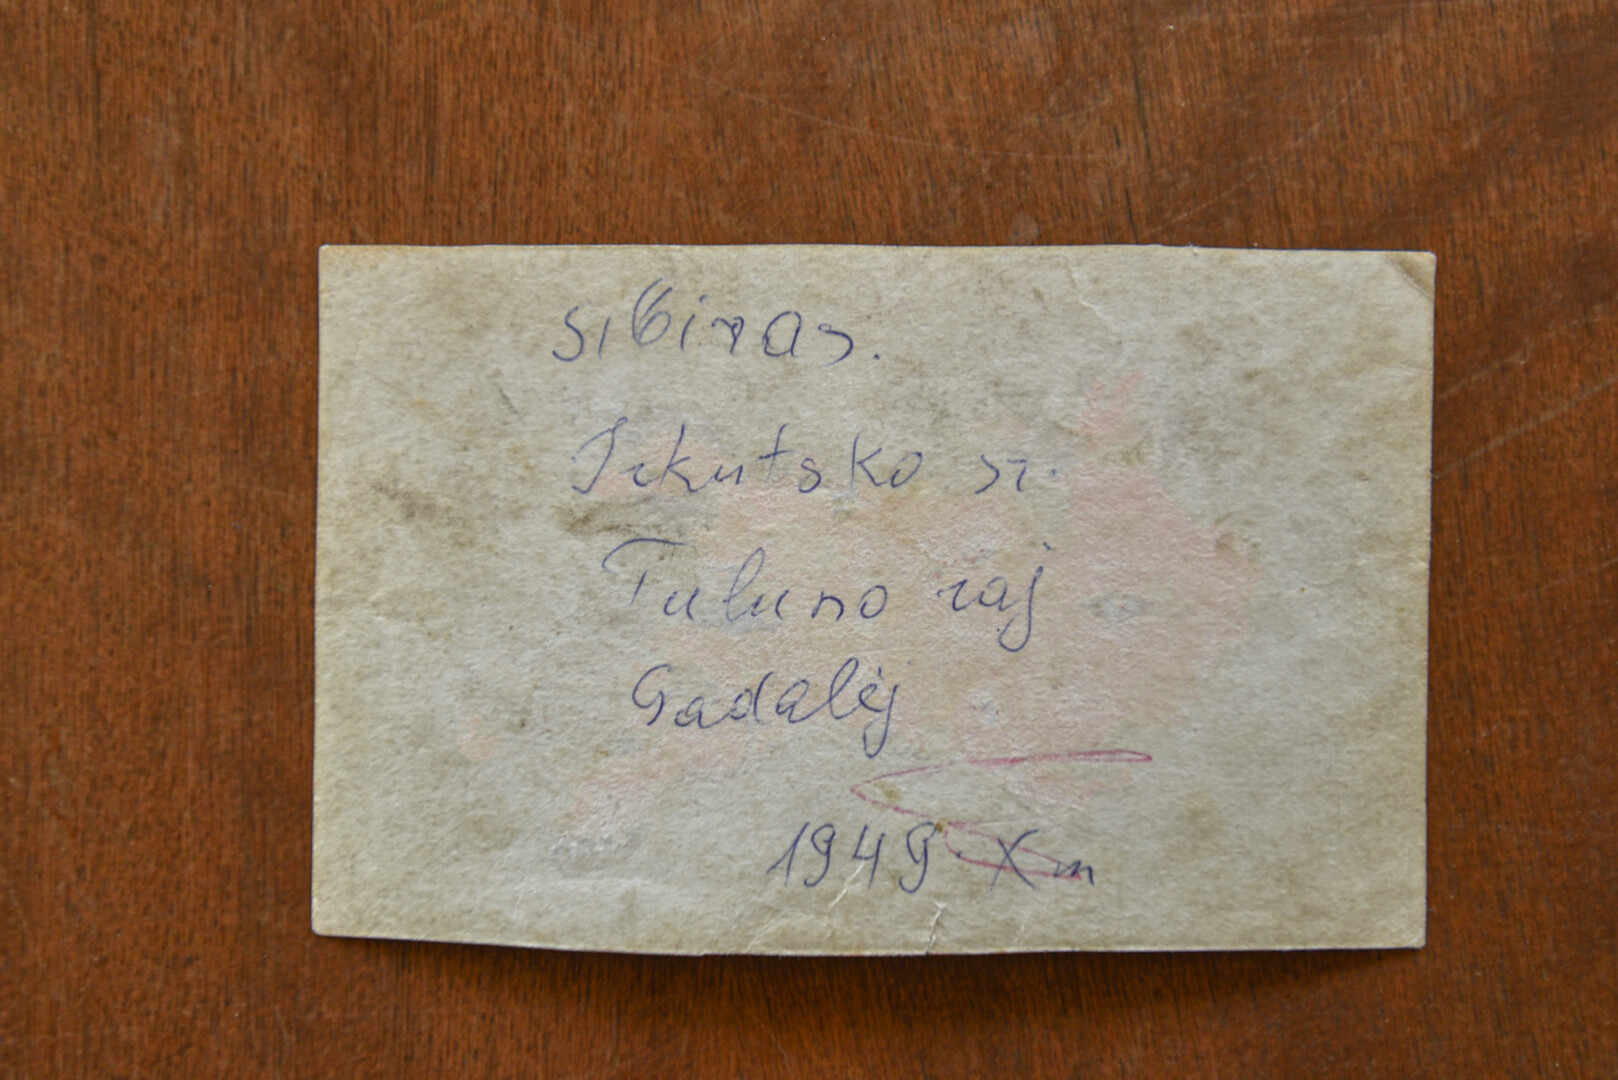 Sibiras.
Irkutsko sr.
Tuluno raj
Gadalėj
1949 X m